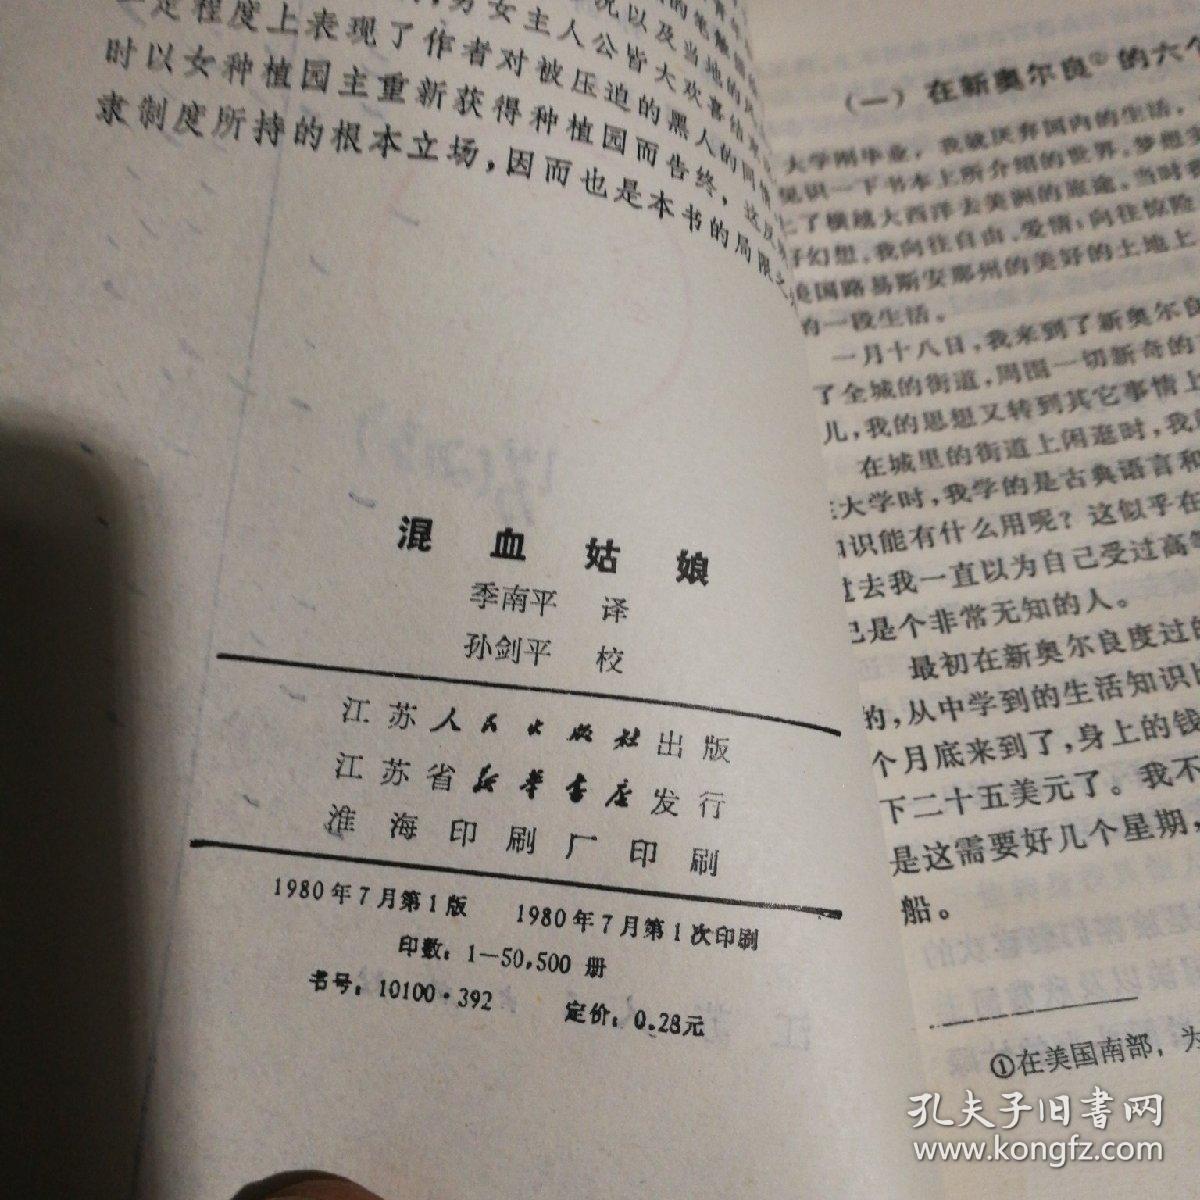 定程度上表现了作者对被压迫的黑人的同情
时以女种植园主重新获得种植园而告终，这反
隶制度所持的根本立场，因而也是本书的局限之
混血姑娘
季南平 译
孙剑平 校
江苏人民出版社出版
江苏省新华书店发行
淮海印刷厂印刷
1980年7月第1版 1980年7月第1次印刷
印数：1—50,500 册
书号：10100·392 定价：0.28元
（一）在新奥尔良①的六个
大学刚毕业，我就厌弃国内的生活，
见识一下书本上所介绍的世界。梦想
上了横越大西洋去美洲的旅途。当时我
幻想。我向往自由、爱情；向往惊险
美国路易斯安那州的美好的土地上
的一段生活。
一月十八日，我来到了新奥尔良
了全城的街道，周围一切新奇的
儿，我的思想又转到其它事情上
在城里的街道上闲逛时，我
大学时，我学的是古典语言和
知识能有什么用呢？这似乎在
过去我一直以为自己受过高等
己是个非常无知的人。
最初在新奥尔良度过的
的，从中学到的生活知识比
个月底来到了，身上的钱
下二十五美元了。我不
是这需要好几个星期，
船。
①在美国南部，为
孔夫子旧书网
www.kongfz.com